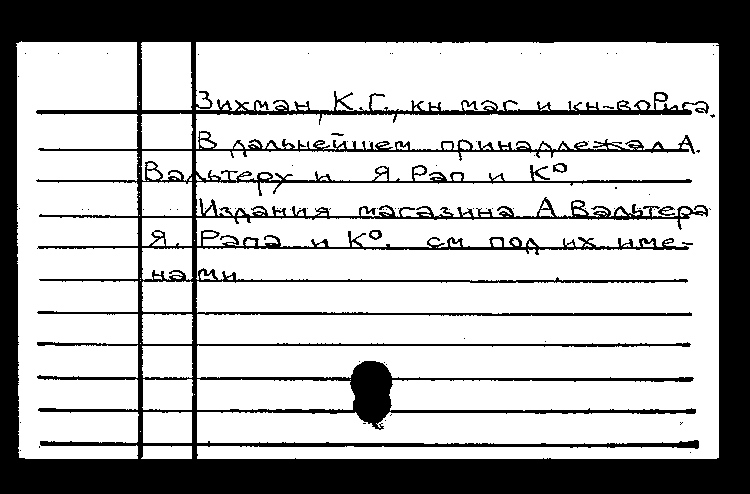 Зихман, К.Г., кн маг и кн-во Рига.
В дальнейшем принадлежал А.
Вальтеру и Я. Рап и Кº.
Издания магазина А Вальтера
Я. Рапа и Кº. см под их име-
нами